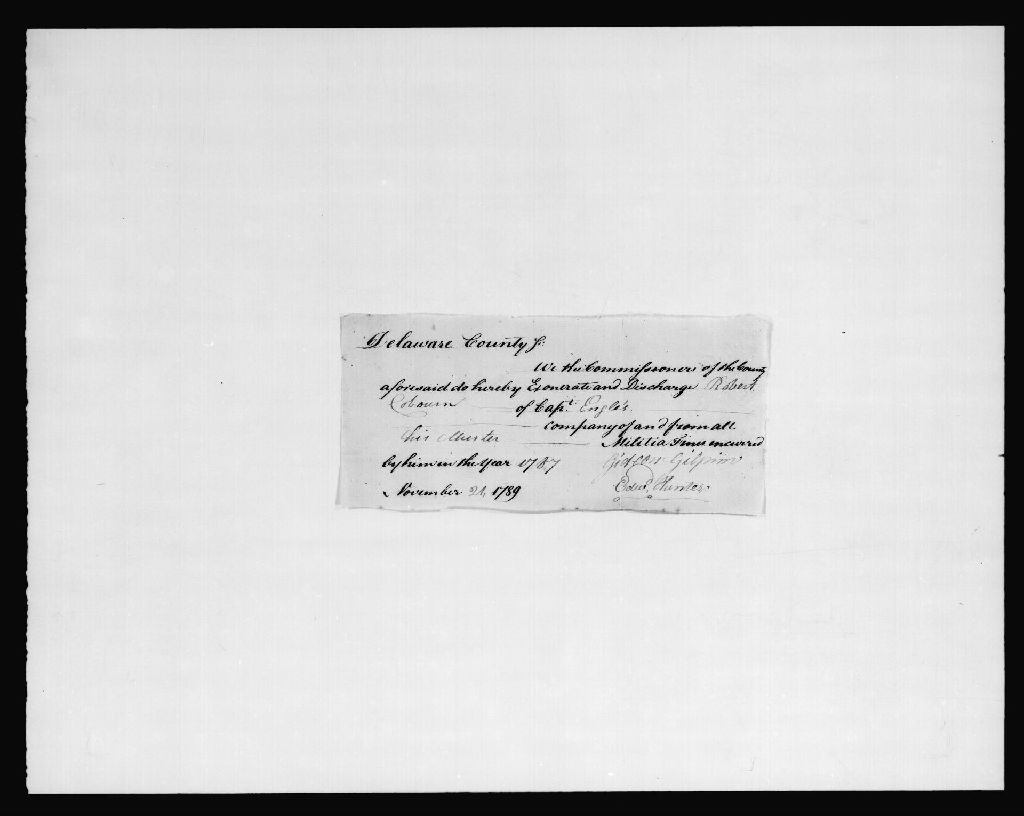 Delaware County Ss.
We the Commissioners of the County
aforesaid do hereby Exonerate and Discharge Robert
Cobourn of Capt. Engle's
Company of and from all
this Muster Militia Fines incurred
by him in the Year 1787 Gideon Gilpin
November 21, 1789 Edwd. Hunter